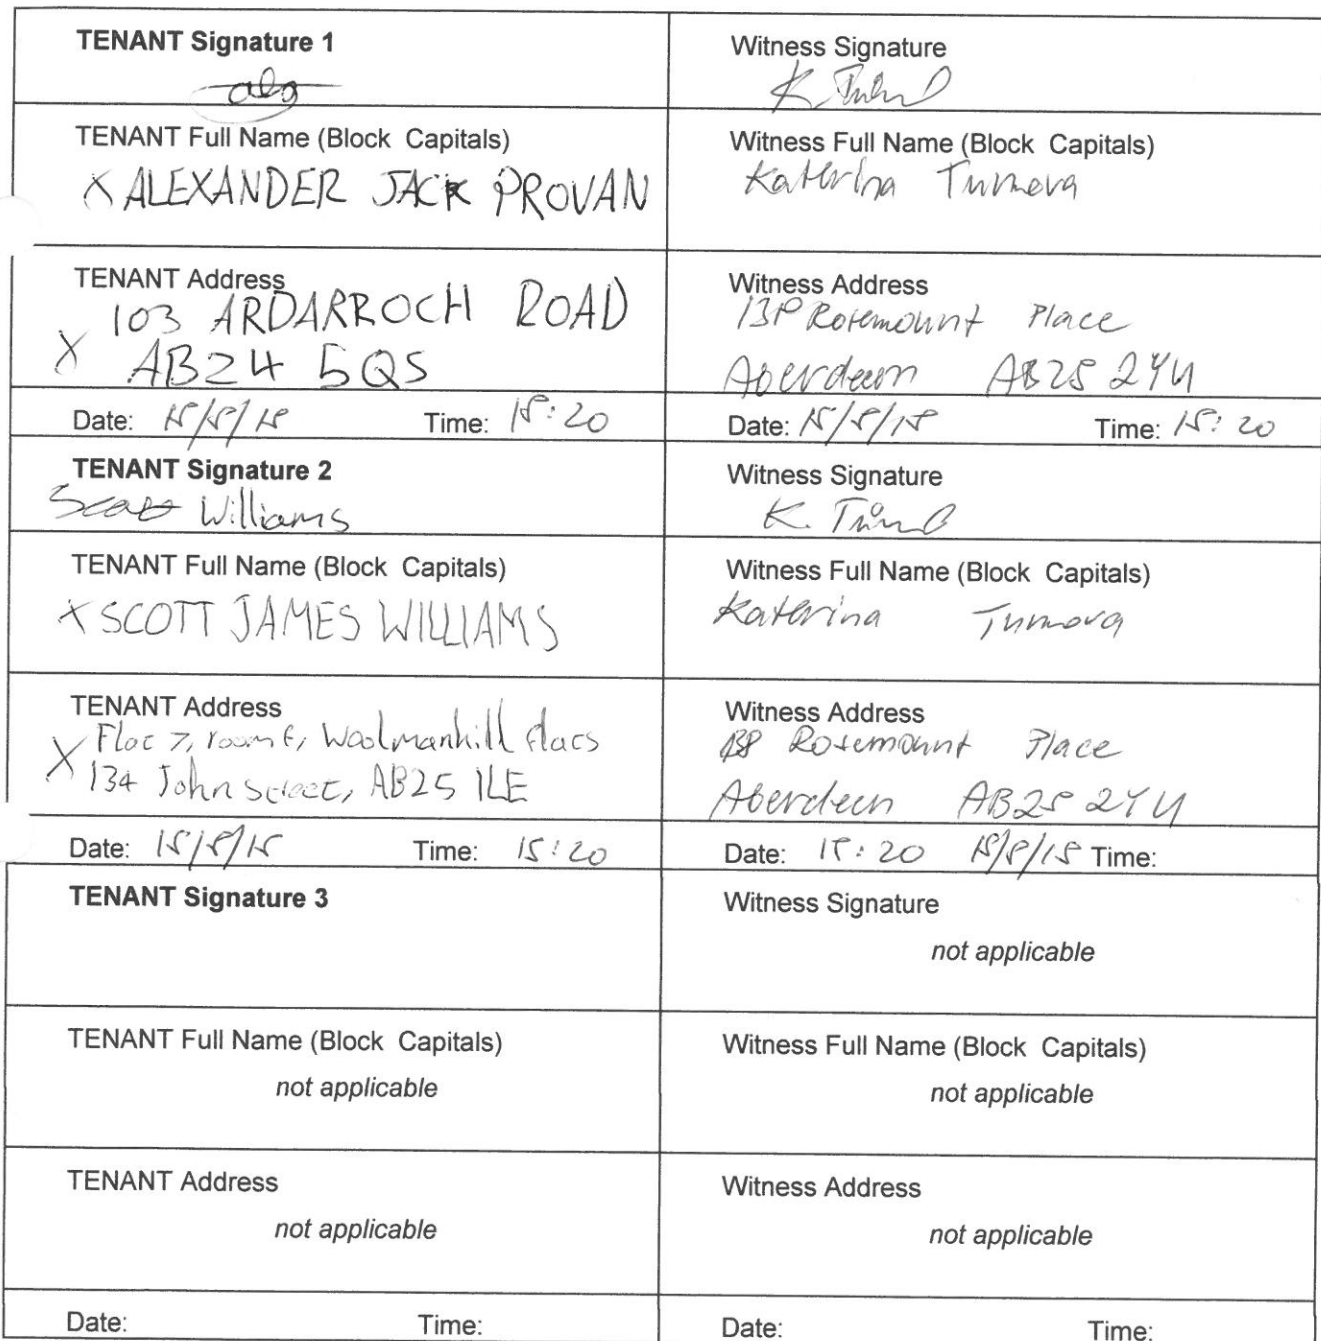 TENANT Signature 1
Witness Signature
TENANT Full Name (Block Capitals)
X ALEXANDER JACK PROVAN
Witness Full Name (Block Capitals)
Katerina Tumova
TENANT Address
X 103 ARDARROCH ROAD
AB24 5QS
Witness Address
138 Rosemount Place
Aberdeen AB25 2YU
Date: 15/8/15 Time: 15:20
Date: 15/8/15 Time: 15:20
TENANT Signature 2
Scott Williams
Witness Signature
TENANT Full Name (Block Capitals)
X SCOTT JAMES WILLIAMS
Witness Full Name (Block Capitals)
Katerina Tumova
TENANT Address
X Flat 7, room F, Woolmanhill flats
134 John Street, AB25 1LE
Witness Address
138 Rosemount Place
Aberdeen AB25 2YU
Date: 15/8/15 Time: 15:20
Date: 15:20 15/8/15 Time:
TENANT Signature 3
Witness Signature
not applicable
TENANT Full Name (Block Capitals)
not applicable
Witness Full Name (Block Capitals)
not applicable
TENANT Address
not applicable
Witness Address
not applicable
Date: Time:
Date: Time: